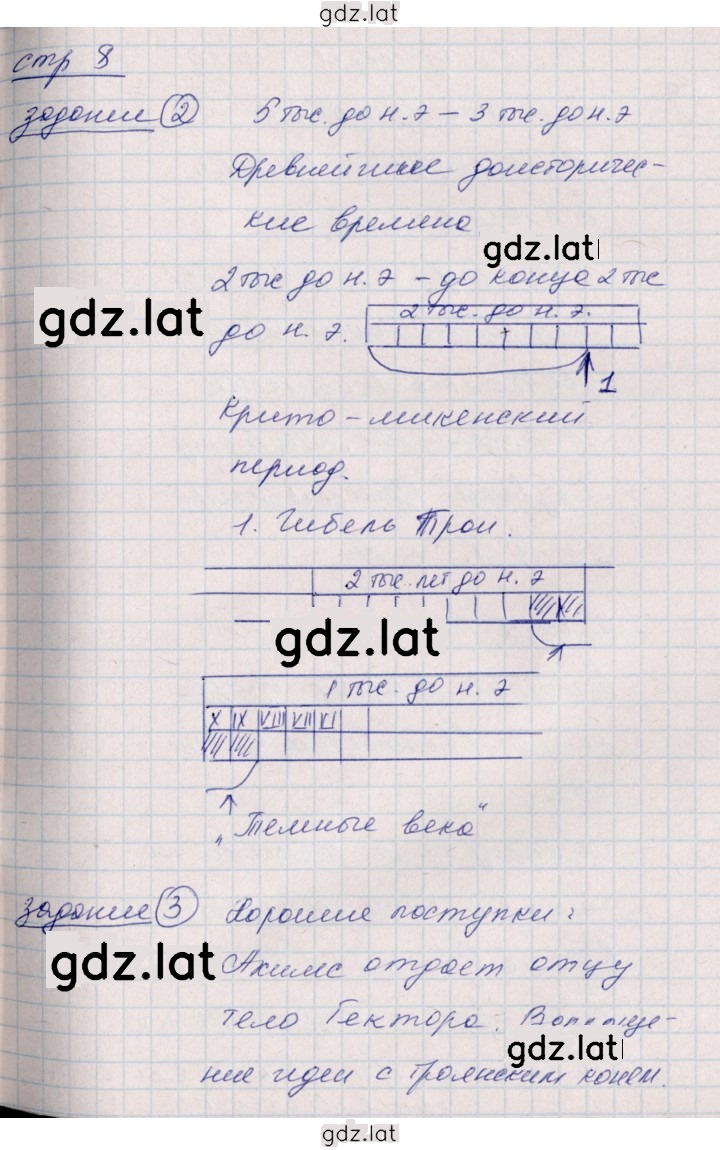 gdz.lat
стр 8
задание 2 5 тыс. до н. э – 3 тыс. до н. э
Древнейшие доисторичес-
кие времена
gdz.lat
2 тыс до н. э – до конца 2 тыс
gdz.lat
до н. э. 2 тыс. до н. э.
1
Крито-микенский
период.
1. Гибель Трои.
2 тыс. лет до н. э
gdz.lat
1 тыс. до н. э
X IX VIII VII VI
„Темные века“
задание 3 Хорошие поступки:
gdz.lat
Ахилл отдает отцу
тело Гектора. Воплоще-
gdz.lat
ние идеи с троянским конем.
gdz.lat